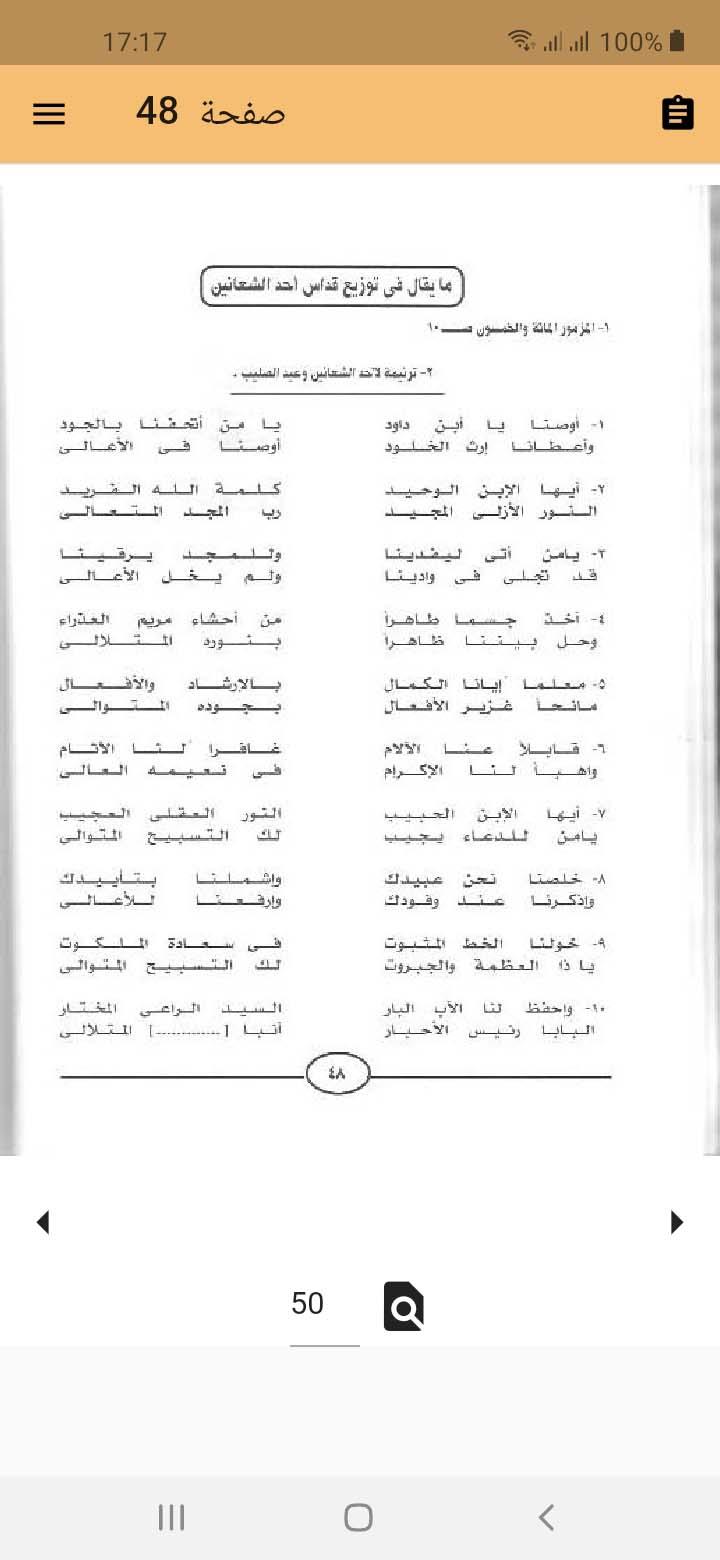 17:17
100%
صفحة 48
ما يقال فى توزيع قداس أحد الشعانين
١- المزمور المائة والخمسون صـــ ١٠
٢- ترنيمة لأحد الشعانين وعيد الصليب .
١- أوصنا يا أبن داود يا من أتحفنا بالجود
وأعطانا إرث الخلود أوصنا فى الأعالى
٢- أيها الإبن الوحيد كلمة الله الفريد
النور الأزلى المجيد رب المجد المتعالى
٣- يامن أتى ليفدينا وللمجد يرقينا
قد تجلى فى وادينا ولم يخل الأعالى
٤- أخذ جسما طاهراً من أحشاء مريم العذراء
وحل بيننا ظاهراً بنوره المتلالى
٥- معلما إيانا الكمال بالإرشاد والأفعال
مانحاً غزير الأفعال بجوده المتوالى
٦- قابلاً عنا الآلام غافرا لنا الآثام
واهباً لنا الإكرام فى نعيمه العالى
٧- أيها الابن الحبيب النور العقلى العجيب
يامن للدعاء يجيب لك التسبيح المتوالى
٨- خلصنا نحن عبيدك واشملنا بتأييدك
واذكرنا عند وفودك وارفعنا للأعالى
٩- خولنا الخط المثبوت فى سعادة الملكوت
يا ذا العظمة والجبروت لك التسبيح المتوالى
١٠- واحفظ لنا الآب البار السيد الراعى المختار
البابا رئيس الأحبار أنبا [.............] المتلالى
٤٨
50